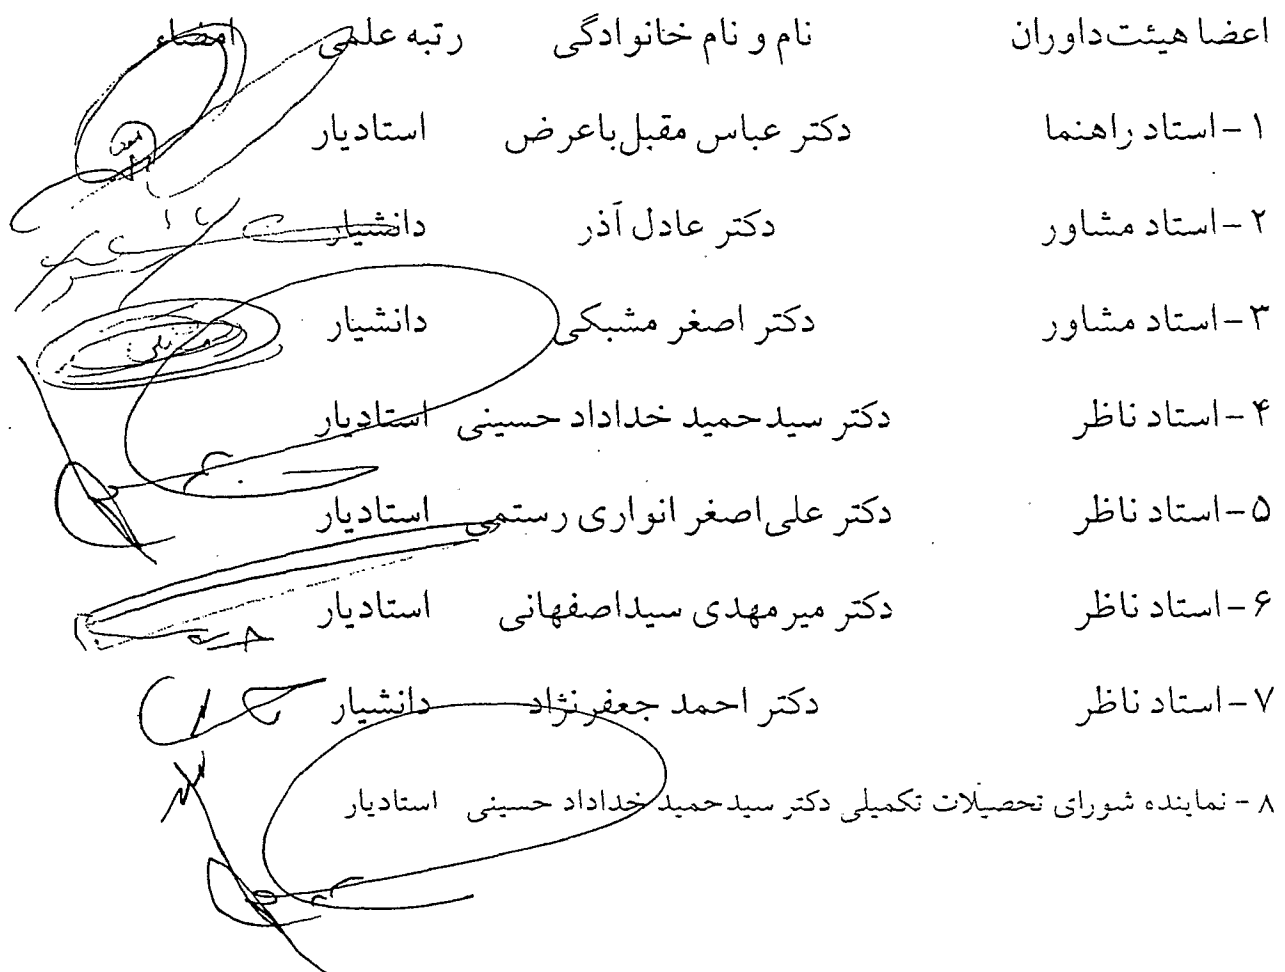 اعضا هیئت‌داوران نام و نام خانوادگی رتبه علمی امضاء
۱-استاد راهنما دکتر عباس مقبل‌باعرض استادیار
۲-استاد مشاور دکتر عادل آذر دانشیار
۳-استاد مشاور دکتر اصغر مشبکی دانشیار
۴-استاد ناظر دکتر سیدحمید خداداد حسینی استادیار
۵-استاد ناظر دکتر علی‌اصغر انواری رستمی استادیار
۶-استاد ناظر دکتر میرمهدی سیداصفهانی استادیار
۷-استاد ناظر دکتر احمد جعفرنژاد دانشیار
۸- نماینده شورای تحصیلات تکمیلی دکتر سیدحمید خداداد حسینی استادیار